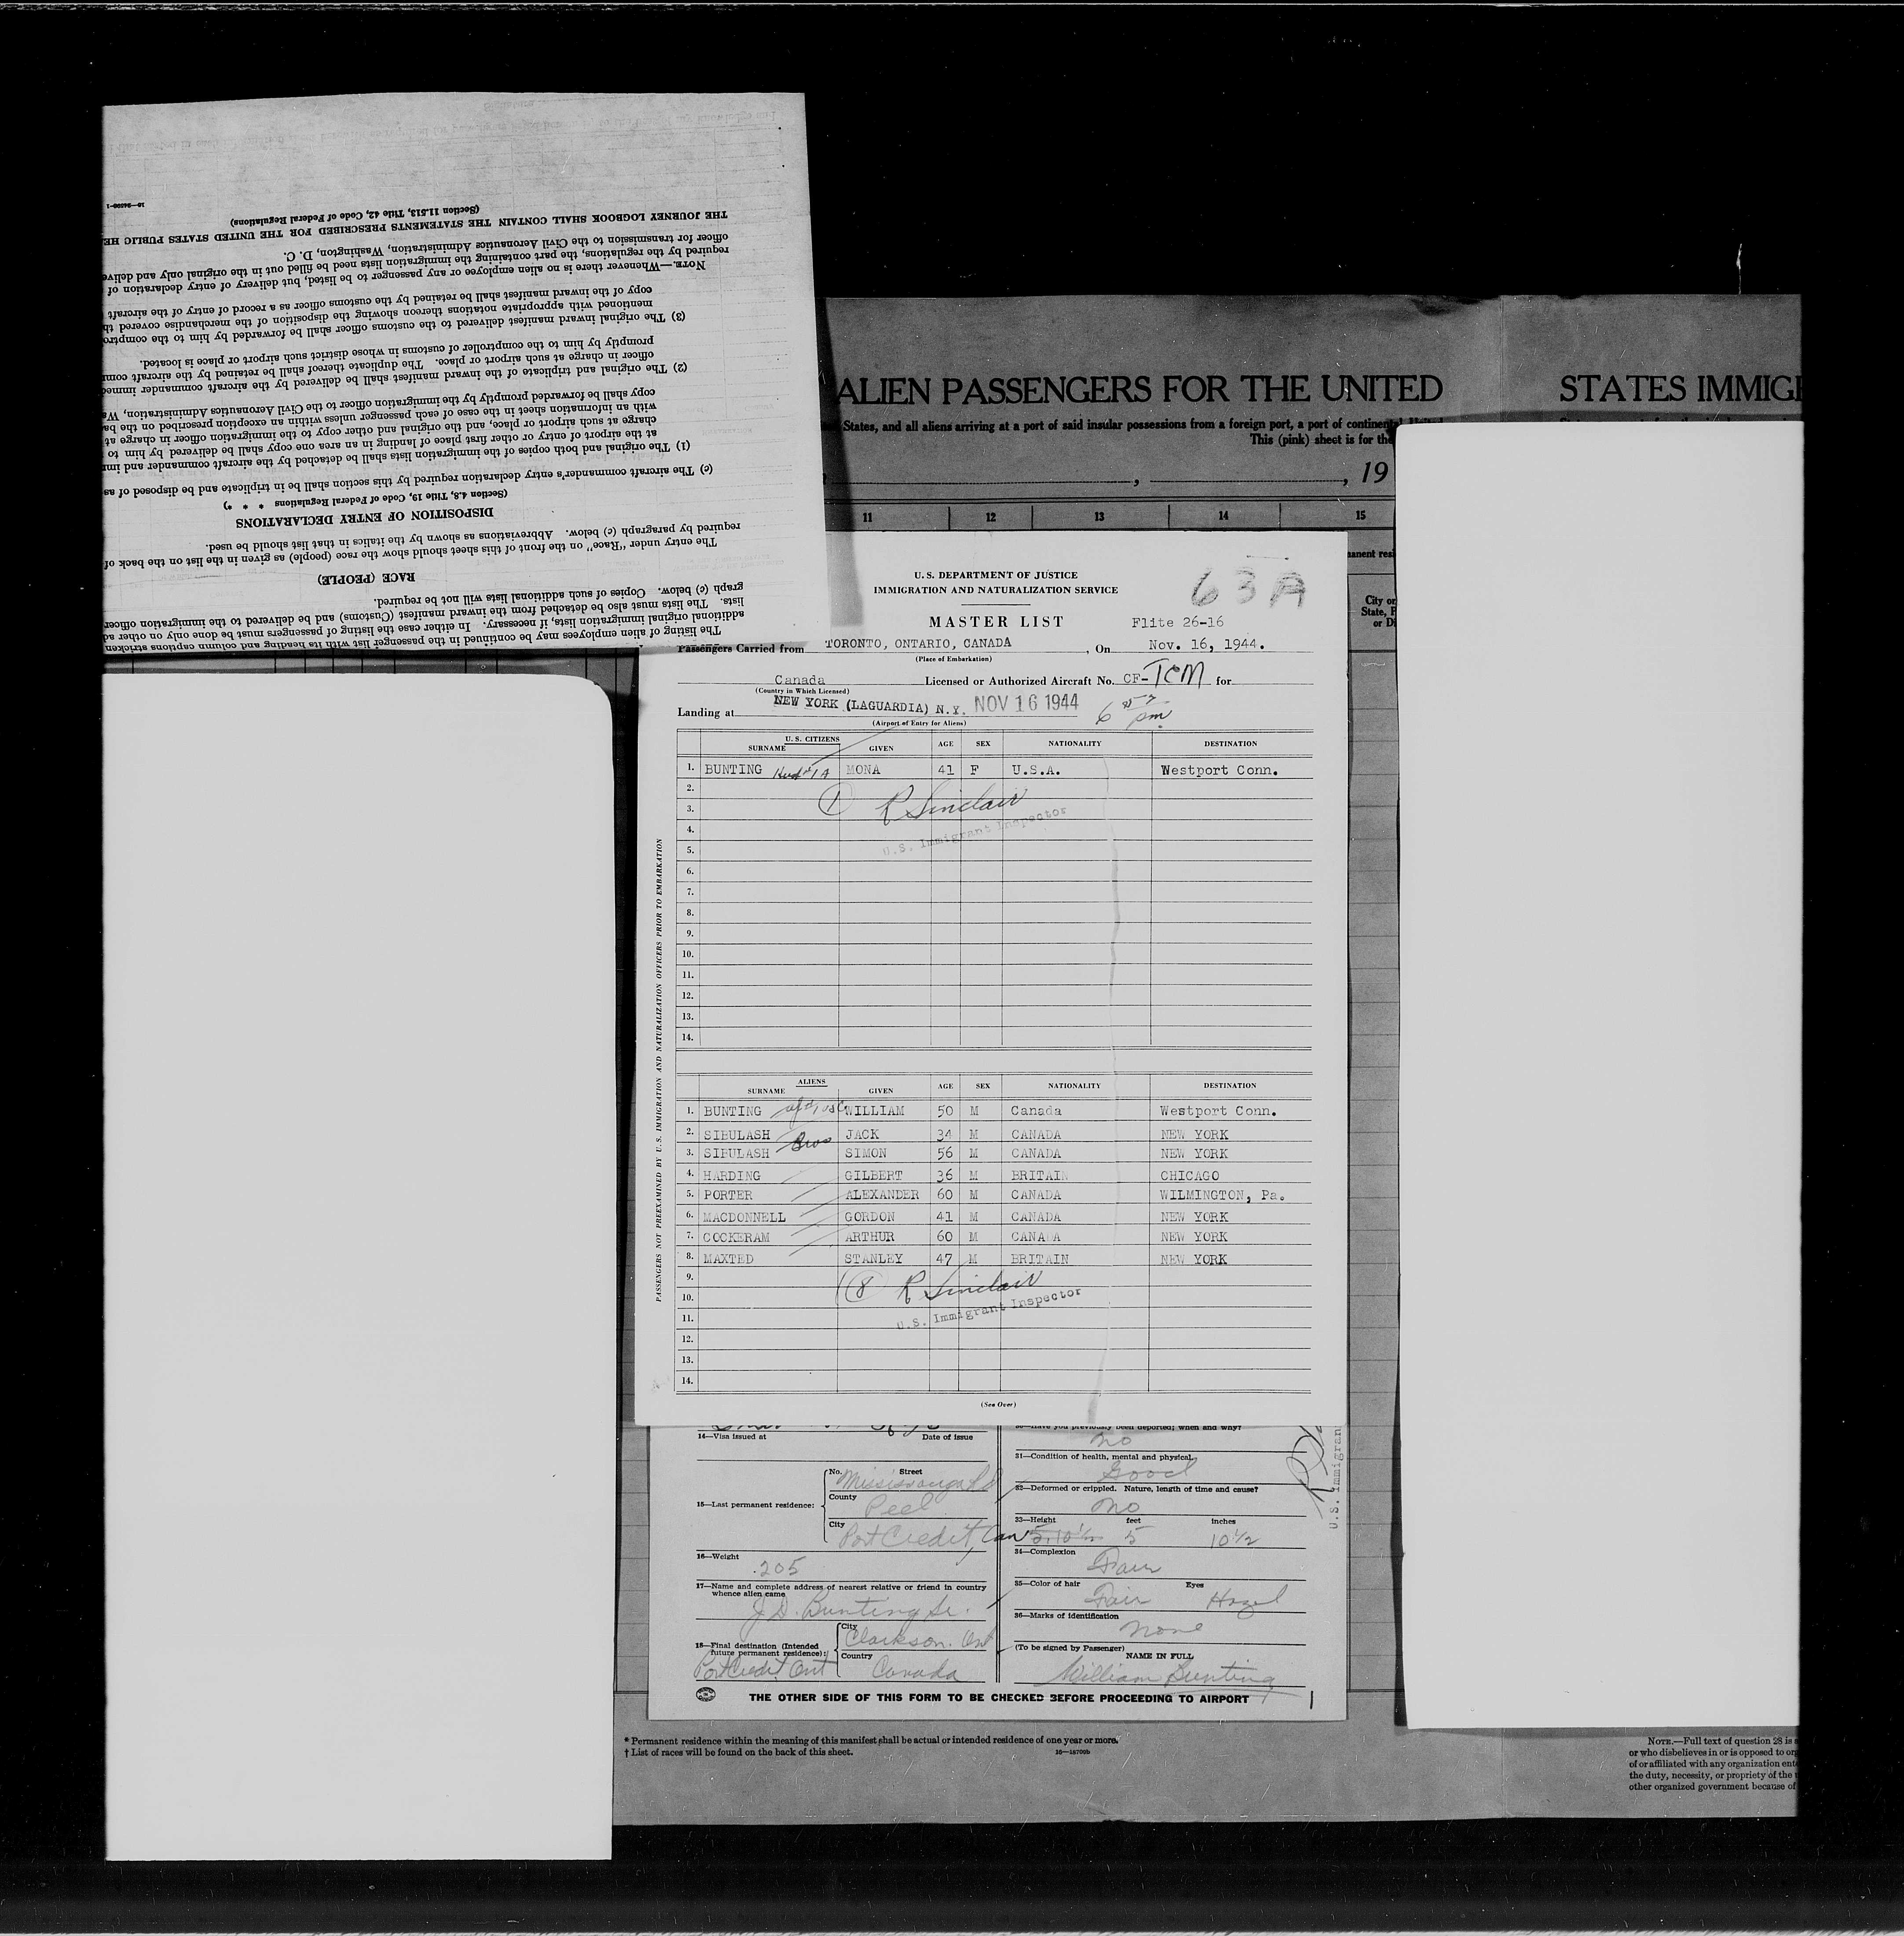 16—24598-1
(Section 11.513, Title 42, Code of Federal Regulations)
THE JOURNEY LOGBOOK SHALL CONTAIN THE STATEMENTS PRESCRIBED FOR THE UNITED STATES PUBLIC HE
officer for transmission to the Civil Aeronautics Administration, Washington, D. C.
required by the regulations, the part containing the immigration lists need be filled out in the original only and delive
NOTE.—Whenever there is no alien employee or any passenger to be listed, but delivery of entry declaration of
copy of the inward manifest shall be retained by the customs officer as a record of entry of the aircraft
mentioned with appropriate notations thereon showing the disposition of the merchandise covered th
(3) The original inward manifest delivered to the customs officer shall be forwarded by him to the comptro
promptly by him to the comptroller of customs in whose district such airport or place is located.
officer in charge at such airport or place. The duplicate thereof shall be retained by the aircraft com
(2) The original and triplicate of the inward manifest shall be delivered by the aircraft commander immed
copy shall be forwarded promptly by the immigration officer to the Civil Aeronautics Administration, Wa
with an information sheet in the case of each passenger unless within an exception prescribed on the ba
charge at such airport or place, and the original and other copy to the immigration officer in charge at
at the airport of entry or other first place of landing in an area one copy shall be delivered by him to
(1) The original and both copies of the immigration lists shall be detached by the aircraft commander and im
(c) The aircraft commander's entry declaration required by this section shall be in triplicate and be disposed of as
(Section 4.8, Title 19, Code of Federal Regulations * * *)
DISPOSITION OF ENTRY DECLARATIONS
required by paragraph (c) below. Abbreviations as shown by the italics in that list should be used.
The entry under "Race" on the front of this sheet should show the race (people) as given in the list on the back of
RACE (PEOPLE)
graph (c) below. Copies of such additional lists will not be required.
lists. The lists must also be detached from the inward manifest (Customs) and be delivered to the immigration officer
additional original immigration lists, if necessary. In either case the listing of passengers must be done only on other ad
The listing of alien employees may be continued in the passenger list with its heading and column captions stricken
ALIEN PASSENGERS FOR THE UNITED STATES IMMIG
States, and all aliens arriving at a port of said insular possessions from a foreign port, a port of continental
This (pink) sheet is for the
, , 19
11 12 13 14 15
City or
State, P
or Di
63A
U.S. DEPARTMENT OF JUSTICE
IMMIGRATION AND NATURALIZATION SERVICE
MASTER LIST Flite 26-16
Passengers Carried from TORONTO, ONTARIO, CANADA, On Nov. 16, 1944.
(Place of Embarkation)
Canada Licensed or Authorized Aircraft No. CF-TCM for
(Country in Which Licensed)
Landing at NEW YORK (LAGUARDIA) N.Y. NOV 16 1944 6 57 pm
(Airport of Entry for Aliens)
U.S. CITIZENS
SURNAME GIVEN AGE SEX NATIONALITY DESTINATION
1. BUNTING MONA 41 F U.S.A. Westport Conn.
2.
3. 1 R Sinclair
4. U.S. Immigrant Inspector
5.
6.
7.
8.
9.
10.
11.
12.
13.
14.
PASSENGERS NOT PREEXAMINED BY U. S. IMMIGRATION AND NATURALIZATION OFFICERS PRIOR TO EMBARKATION
ALIENS
SURNAME GIVEN AGE SEX NATIONALITY DESTINATION
1. BUNTING WILLIAM 50 M Canada Westport Conn.
2. SIBULASH JACK 34 M CANADA NEW YORK
Bros
3. SIBULASH SIMON 56 M CANADA NEW YORK
4. HARDING GILBERT 36 M BRITAIN CHICAGO
5. PORTER ALEXANDER 60 M CANADA WILMINGTON, Pa.
6. MACDONNELL GORDON 41 M CANADA NEW YORK
7. COCKERAM ARTHUR 60 M CANADA NEW YORK
8. MAXTED STANLEY 47 M BRITAIN NEW YORK
9.
10. 8 R Sinclair
11. U.S. Immigrant Inspector
12.
13.
14.
(See Over)
14—Visa issued at Date of issue
15—Last permanent residence: No. Street
Mississauga Rd
County
Peel
City
Port Credit, Can
16—Weight
205
17—Name and complete address of nearest relative or friend in country
whence alien came
J.D. Bunting Sr.
18—Final destination (Intended
future permanent residence):
City
Clarkson. Ont
Port Credit Ont
Country
Canada
30—Have you previously been deported; when and why?
no
31—Condition of health, mental and physical
Good
32—Deformed or crippled. Nature, length of time and cause?
no
33—Height feet inches
5.10 1/2 5 10 1/2
34—Complexion
Fair
35—Color of hair Eyes
Fair Hazel
36—Marks of identification
none
(To be signed by Passenger)
NAME IN FULL
William Bunting
U.S. Immigran
THE OTHER SIDE OF THIS FORM TO BE CHECKED BEFORE PROCEEDING TO AIRPORT
* Permanent residence within the meaning of this manifest shall be actual or intended residence of one year or more.
† List of races will be found on the back of this sheet.
NOTE.—Full text of question 28 is
or who disbelieves in or is opposed to or
of or affiliated with any organization ent
the duty, necessity, or propriety of the
other organized government because of